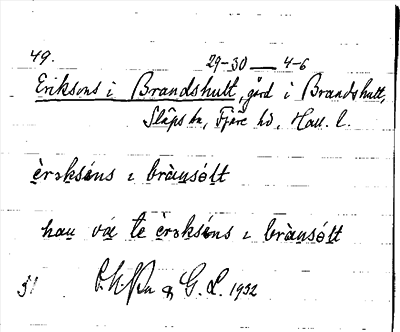 49. 29-30 — 4-6
Eriksons i Brandshult, gård i Brandshult,
Släps sn, Fjäre hd, Hall. l.
èrəksóns ɩ bràu̯sól̯t
hau̯ vá te èrəksóns ɩ bràu̯sól̯t
& G. L. 1932